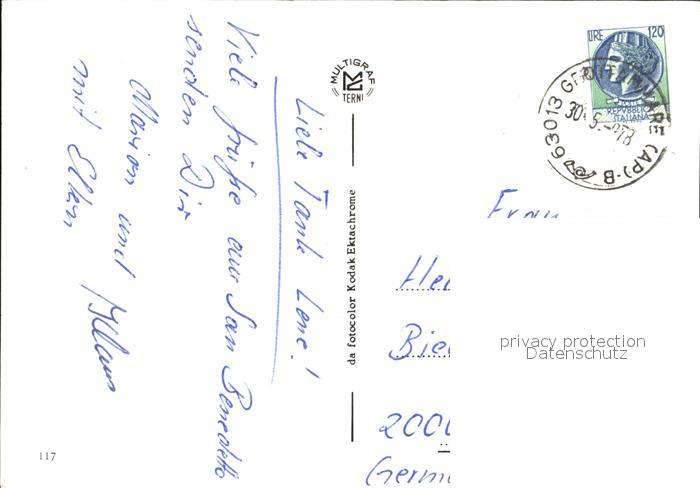 Liebe Tante Lene!
Viele Grüße aus San Benedetto
senden Dir
Marion und Klaus
mit Eltern
MULTIGRAF
TERNI
da fotocolor Kodak Ektachrome
117
LIRE 120
REPVBBLICA
ITALIANA
63013 GROTTAMMARE (AP)-B
Frau
privacy protection
Datenschutz